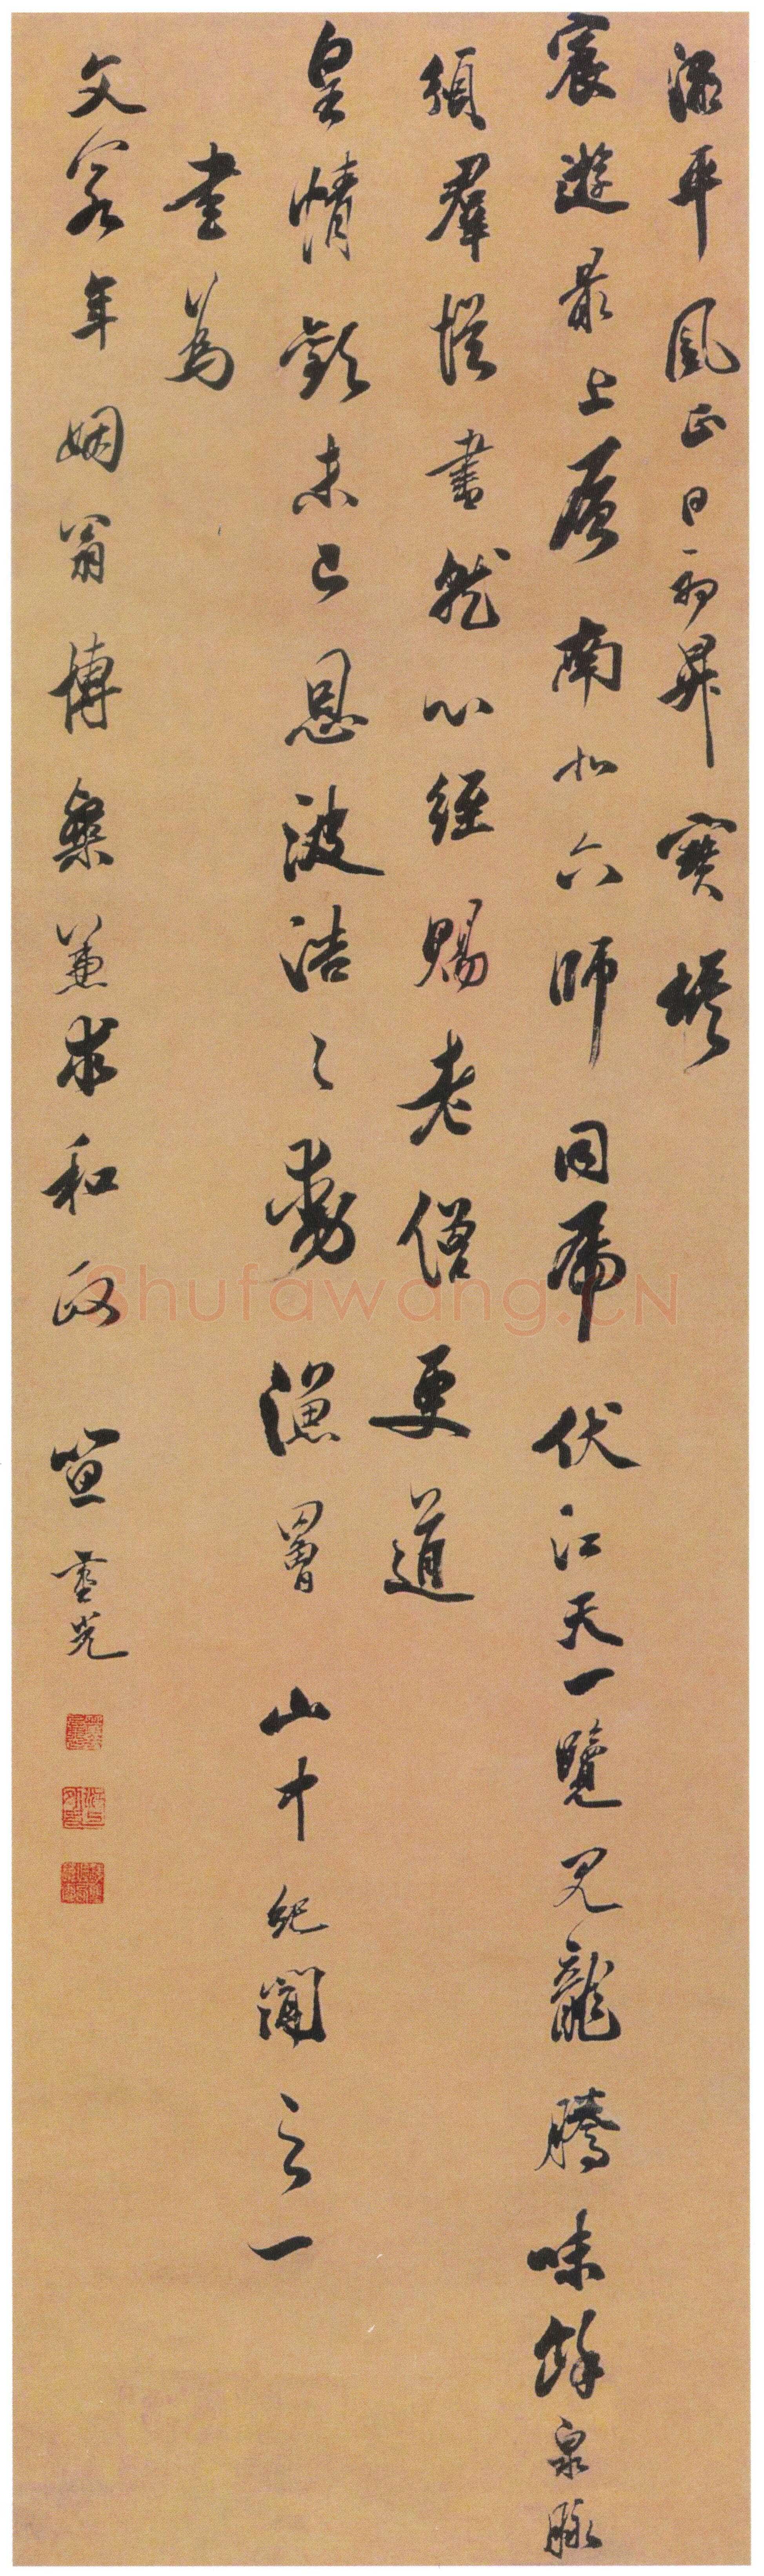 浪平風正日初昇寶塔
宸遊最上層南北六師同虎伏江天一覽見龍騰味餘泉脉
頒羣從書就心經賜老僧更道
皇情歡未已恩波浩〻動漁罾 山中紀聞之一
書為
文容年姻翁博粲兼求和政 笪重光
Shufawang.CN